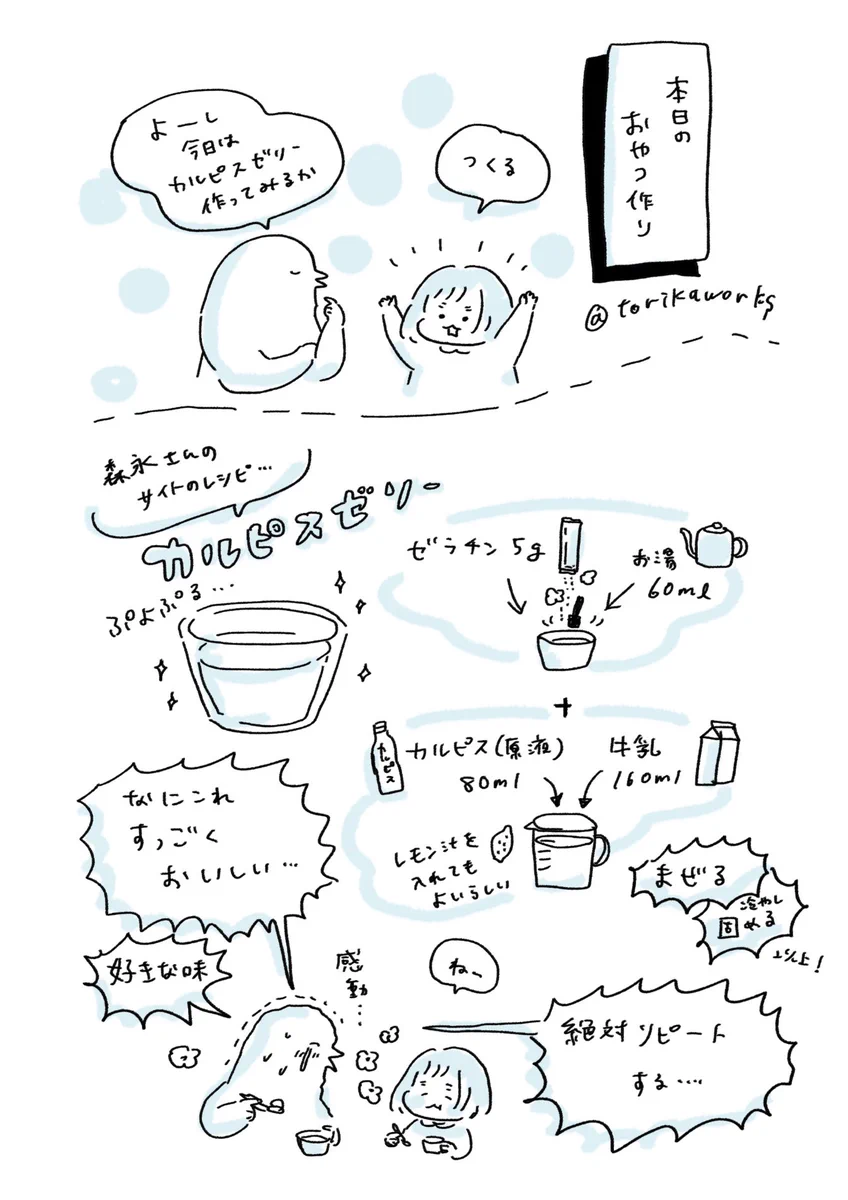 本日の
おやつ作り
@torikaworks
つくる
よーし
今日は
カルピスゼリー
作ってみるか
森永さんの
サイトのレシピ…
カルピスゼリー
ぷよぷる…
ゼラチン5g
お湯
60ml
+
カルピス(原液)
80ml
カルピス
牛乳
160ml
レモン汁を
入れても
よいらしい
まぜる
冷やし
固める
以上!
なにこれ
すっごく
おいしい…
好きな味
感動…
ねー
絶対リピート
する…